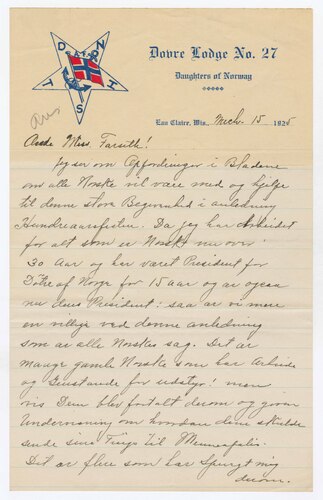 D N H S T
Dovre Lodge No. 27
Daughters of Norway
Eau Claire, Wis., Mch. 15 1925
Ans
Ærede Miss Farseth!
Jeg ser om Opfordringer i Bladene
om alle Norske vil være med og hjelpe
til denne store Begivenhed i anledning
Hundreaarsfesten. Da jeg har arbeidet
for alt som er Norsk nu over
30 Aar og har været President for
Døtre af Norge for 15 aar og er ogsaa
nu deres President: saa er vi mere
en villige ved denne anledning
som er alle Norskes sag. Det er
mange gamle Norske som har Arbeide
og Genstande for udstyr! men
vis Dem blev fortalt derom og given
Underretning om hvordan dem skulde
sende sine Tinge til Minneapolis.
Det er flere som har spurgt mig
derom.